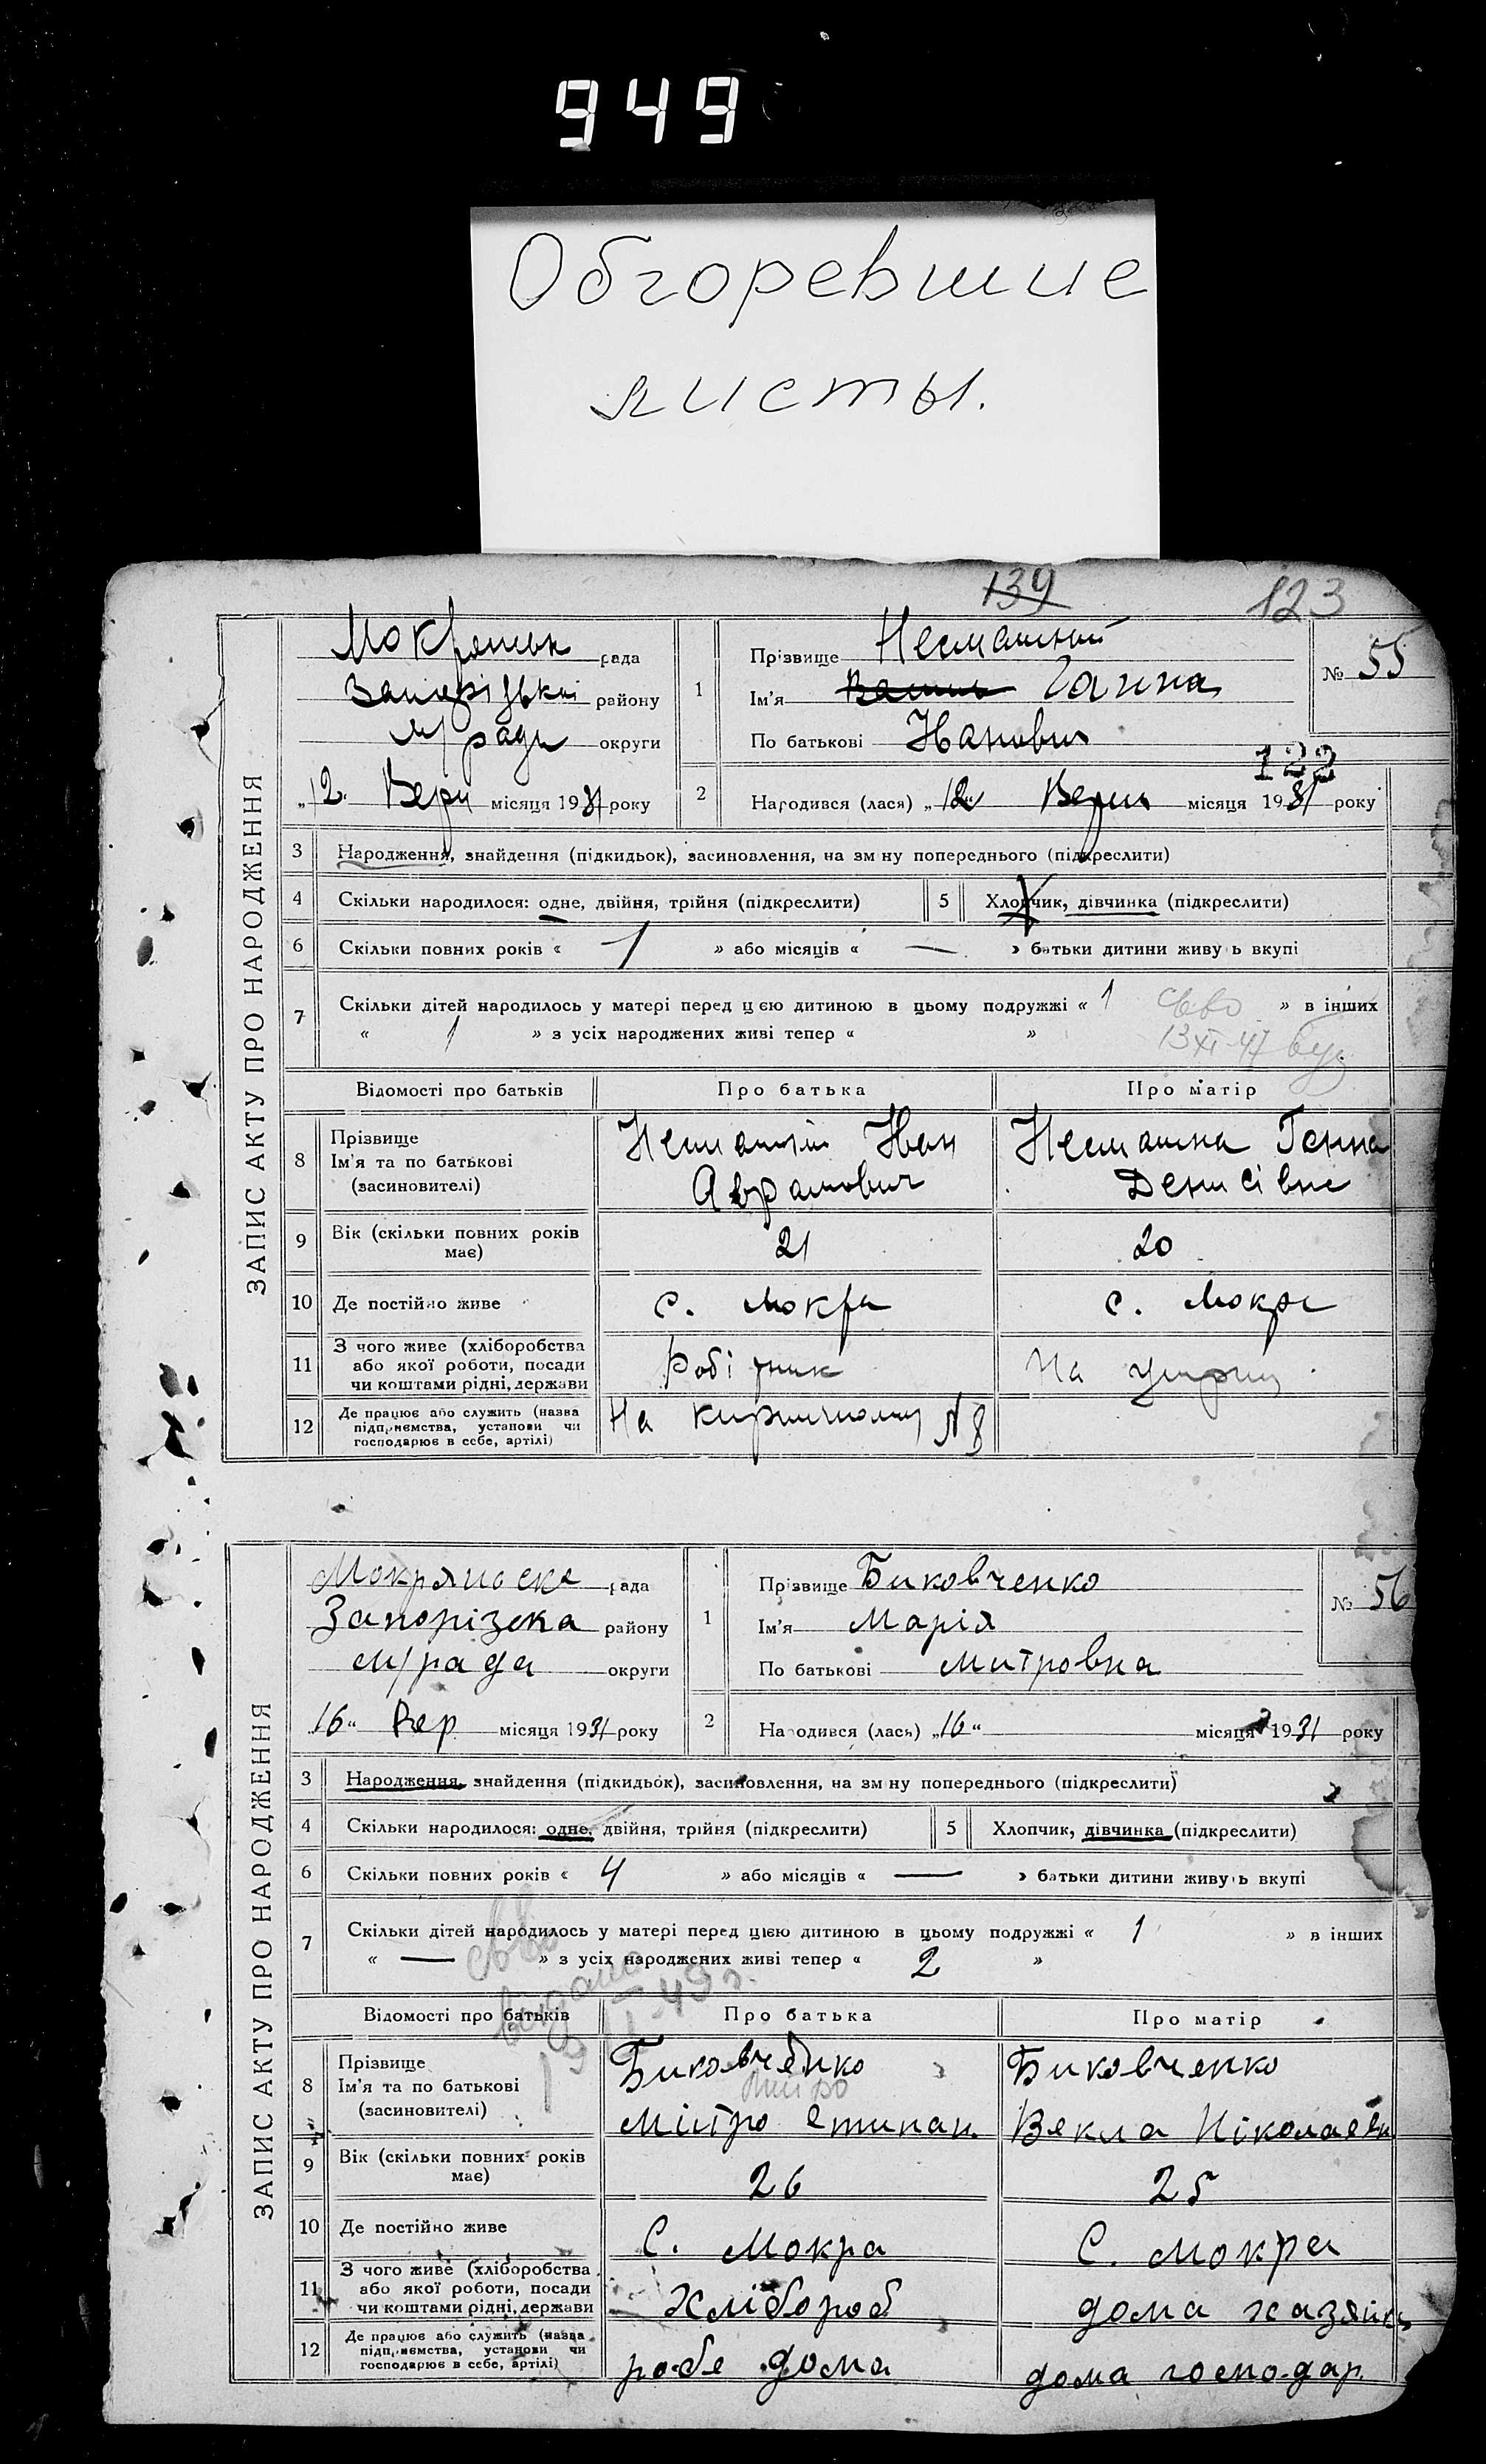 949
Обгоревшие
листы.
139
123
ЗАПИС АКТУ ПРО НАРОДЖЕННЯ
рада
району
м/ради округи
„12. Верн місяця 1931 року
1
Прізвище
Ім'я Ганна
По батькові
№ 55
122
2
Народився (лася) „12“ Верн місяця 1931 року
3 Народження, знайдення (підкидьок), засиновлення, на зміну попереднього (підкреслити)
4 Скільки народилося: одне, двійня, трійня (підкреслити)
5 Хлопчик, дівчинка (підкреслити)
6 Скільки повних років « 1 » або місяців « — » батьки дитини живуть вкупі
7 Скільки дітей народилось у матері перед цією дитиною в цьому подружжі « 1 » в інших
« 1 » з усіх народжених живі тепер « »
13 XI-47
Відомості про батьків Про батька Про матір
8 Прізвище
Ім'я та по батькові
(засиновителі)
Іван
Аврамович
Ганна
Денисівна
9 Вік (скільки повних років
має)
21
20
10 Де постійно живе
с. Мокра
с. Мокра
11 З чого живе (хліборобства
або якої роботи, посади
чи коштами рідні, держави
Робітник
На
12 Де працює або служить (назва
підприємства, установи чи
господарює в себе, артілі)
На кирпичному № 8
ЗАПИС АКТУ ПРО НАРОДЖЕННЯ
Мокрянска рада
Запорізка району
м/рада округи
16“ Вер місяця 1931 року
1
Прізвище Биковченко
Ім'я Марія
По батькові Митровна
№ 56
2
Народився (лася) „16“ місяця 1931 року
3 Народження, знайдення (підкидьок), засиновлення, на зміну попереднього (підкреслити)
4 Скільки народилося: одне, двійня, трійня (підкреслити)
5 Хлопчик, дівчинка (підкреслити)
6 Скільки повних років « 4 » або місяців « — » батьки дитини живуть вкупі
7 Скільки дітей народилось у матері перед цією дитиною в цьому подружжі « 1 » в інших
« — » з усіх народжених живі тепер « 2 »
Відомості про батьків Про батька Про матір
8 Прізвище
Ім'я та по батькові
(засиновителі)
Биковченко
Мітро Стипан.
Биковченко
Векла Ніколаевн
9 Вік (скільки повних років
має)
26
25
10 Де постійно живе
С. Мокра
С. Мокра
11 З чого живе (хліборобства
або якої роботи, посади
чи коштами рідні, держави
Хлібороб
дома хазяйка
12 Де працює або служить (назва
підприємства, установи чи
господарює в себе, артілі)
робе дома
дома господар.